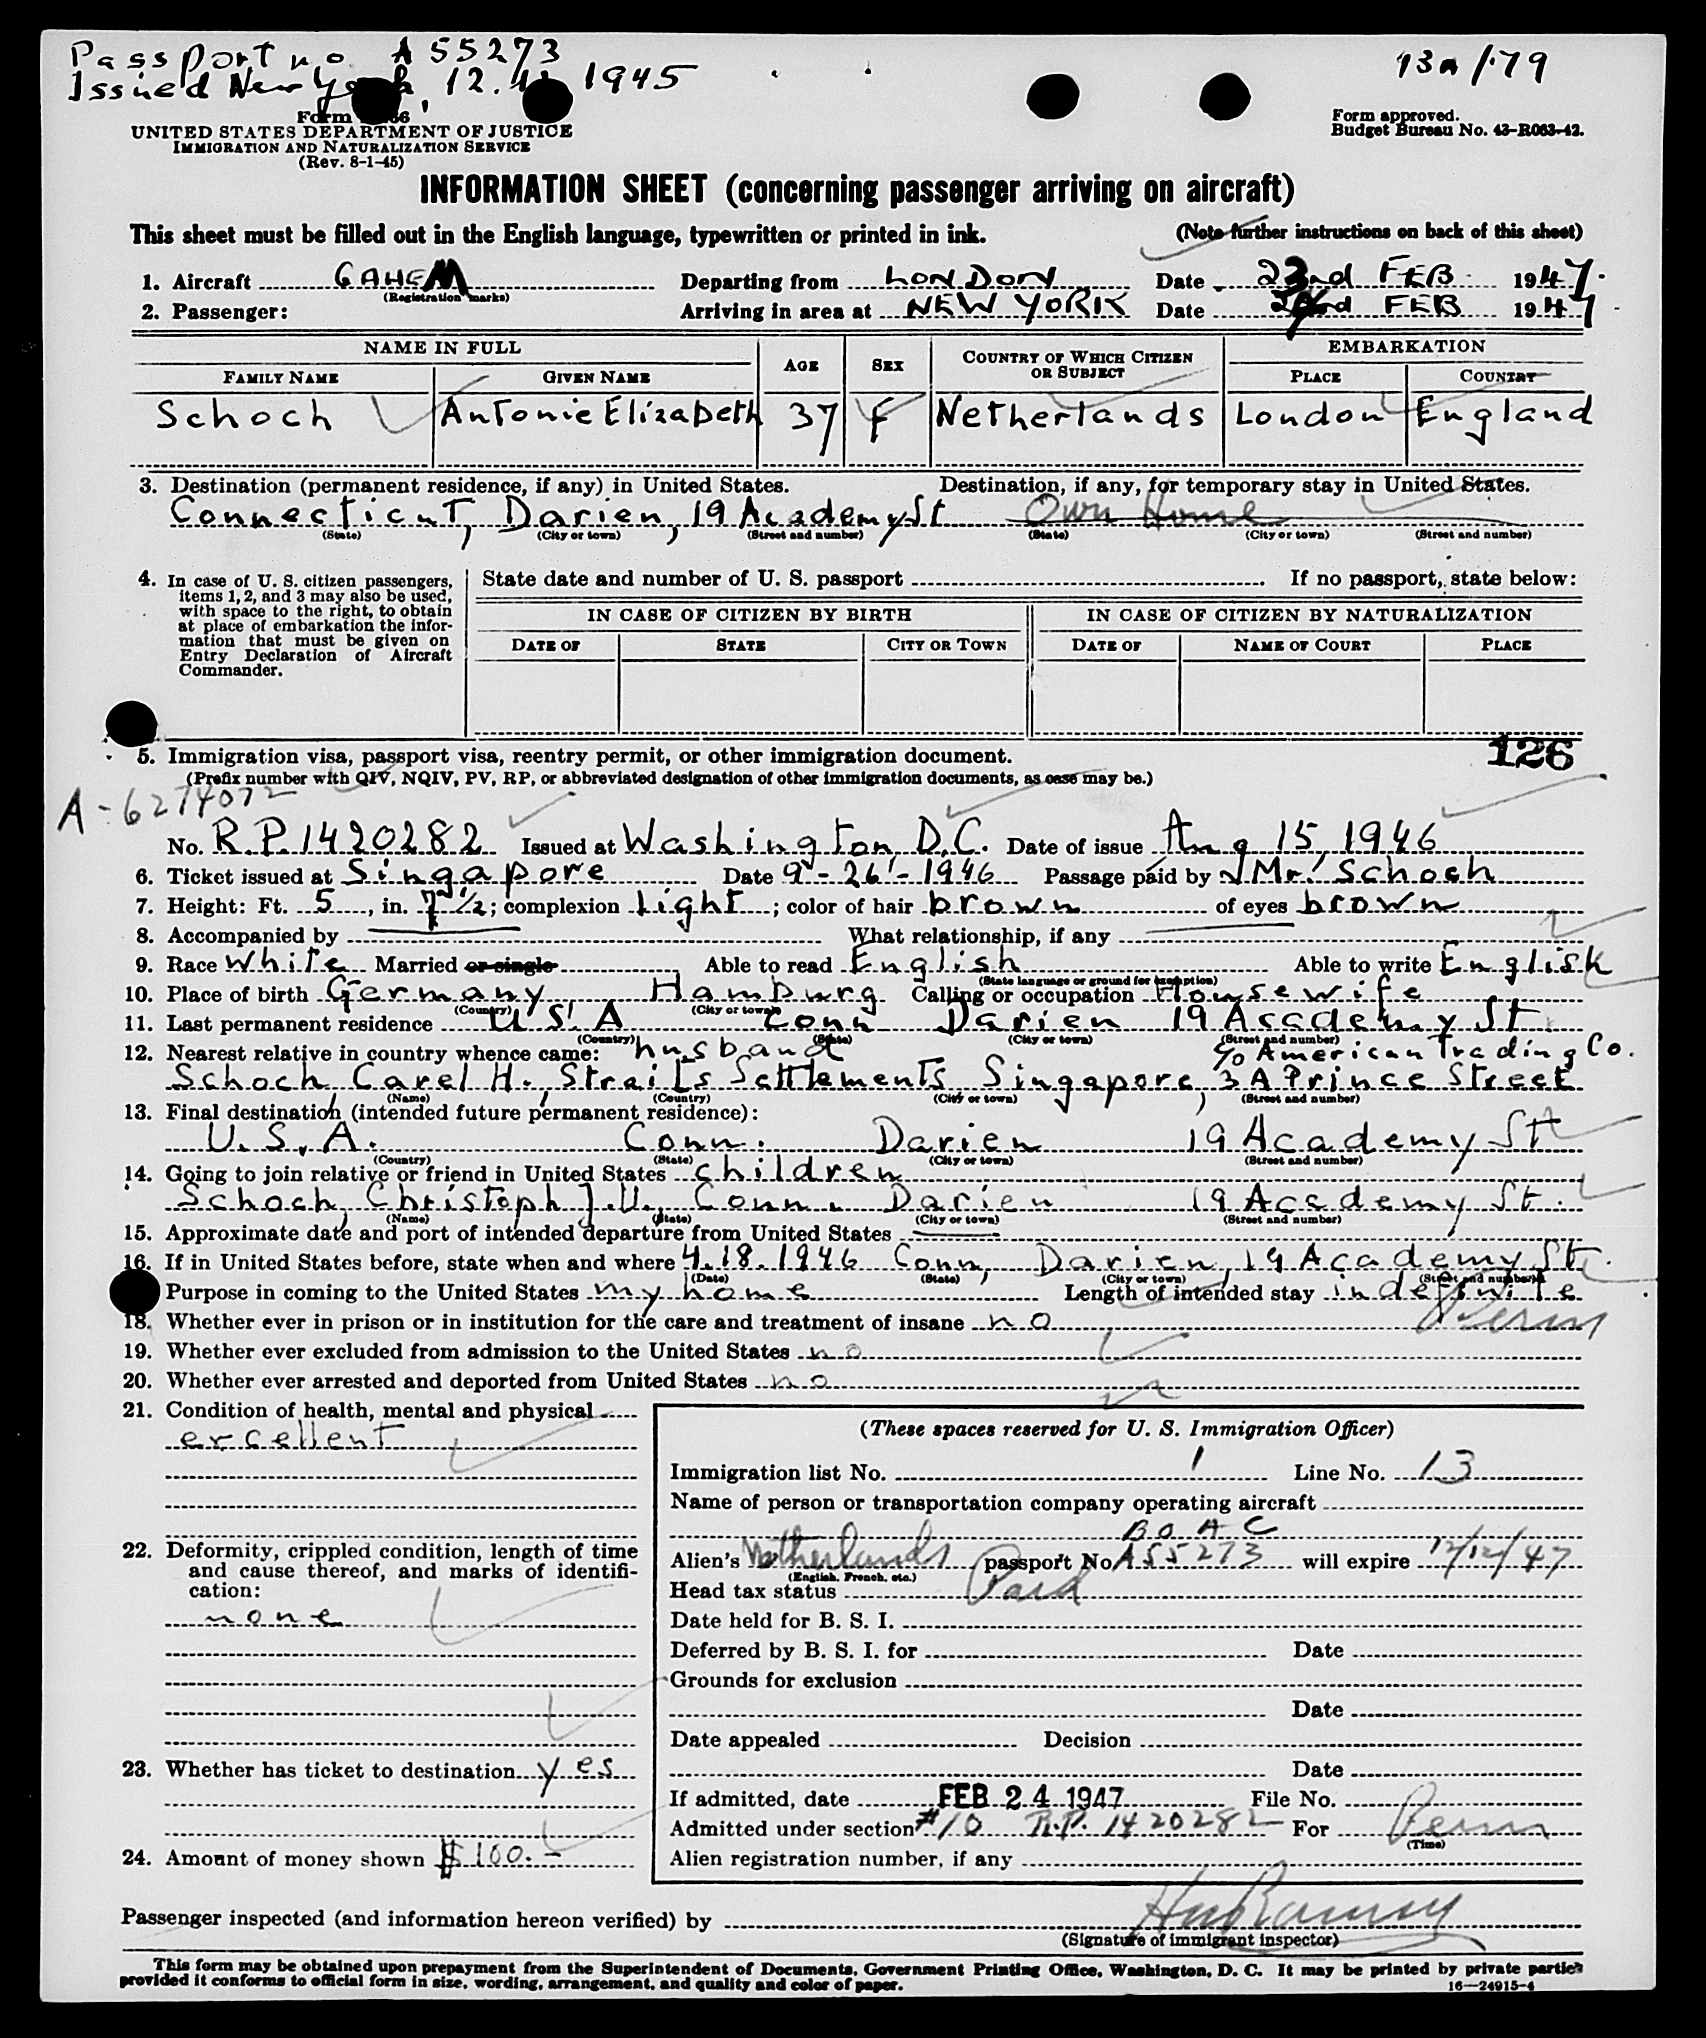 Passport no A 55273
Issued New York, 12. 1945
13a/179
Form
UNITED STATES DEPARTMENT OF JUSTICE
IMMIGRATION AND NATURALIZATION SERVICE
(Rev. 8-1-45)
Form approved.
Budget Bureau No. 43-R063-42.
INFORMATION SHEET (concerning passenger arriving on aircraft)
This sheet must be filled out in the English language, typewritten or printed in ink.
(Note further instructions on back of this sheet)
1. Aircraft GAHEM Departing from LONDON Date 23rd FEB 1947.
(Registration marks)
2. Passenger: Arriving in area at NEW YORK Date FEB 1947
NAME IN FULL AGE SEX COUNTRY OF WHICH CITIZEN OR SUBJECT EMBARKATION
FAMILY NAME GIVEN NAME PLACE COUNTRY
Schoch Antonie Elizabeth 37 f Netherlands London England
3. Destination (permanent residence, if any) in United States. Destination, if any, for temporary stay in United States.
Connecticut, Darien, 19 Academy St Own Home
(State) (City or town) (Street and number) (State) (City or town) (Street and number)
4. In case of U. S. citizen passengers,
items 1, 2, and 3 may also be used,
with space to the right, to obtain
at place of embarkation the infor-
mation that must be given on
Entry Declaration of Aircraft
Commander.
State date and number of U. S. passport . If no passport, state below:
IN CASE OF CITIZEN BY BIRTH IN CASE OF CITIZEN BY NATURALIZATION
DATE OF STATE CITY OR TOWN DATE OF NAME OF COURT PLACE
126
5. Immigration visa, passport visa, reentry permit, or other immigration document.
(Prefix number with QIV, NQIV, PV, RP, or abbreviated designation of other immigration documents, as case may be.)
A-6274072
No. R.P. 1420282 Issued at Washington, D.C. Date of issue Aug 15, 1946
6. Ticket issued at Singapore Date 9-26-1946 Passage paid by Mr. Schoch
7. Height: Ft. 5, in. 7 1/2; complexion light; color of hair brown of eyes brown
8. Accompanied by What relationship, if any
9. Race White Married or single Able to read English Able to write English
(State language or ground for exemption)
10. Place of birth Germany Hamburg Calling or occupation Housewife
(Country) (City or town)
11. Last permanent residence U.S.A Conn Darien 19 Academy St
(Country) (State) (City or town) (Street and number)
12. Nearest relative in country whence came: husband c/o American Trading Co.
Schoch, Carel H. Straits Settlements, Singapore, 3A Prince Street
(Name) (Country) (City or town) (Street and number)
13. Final destination (intended future permanent residence):
U.S.A. Conn. Darien 19 Academy St
(Country) (State) (City or town) (Street and number)
14. Going to join relative or friend in United States children
Schoch, Christoph J.U., Conn. Darien 19 Academy St.
(Name) (State) (City or town) (Street and number)
15. Approximate date and port of intended departure from United States
16. If in United States before, state when and where 4.18.1946 Conn, Darien, 19 Academy St.
(Date) (State) (City or town) (Street and number)
Purpose in coming to the United States my home Length of intended stay indefinite
Perm
18. Whether ever in prison or in institution for the care and treatment of insane no
19. Whether ever excluded from admission to the United States no
20. Whether ever arrested and deported from United States no
21. Condition of health, mental and physical
excellent
22. Deformity, crippled condition, length of time
and cause thereof, and marks of identifi-
cation:
none
23. Whether has ticket to destination yes
24. Amount of money shown $100.-
(These spaces reserved for U. S. Immigration Officer)
Immigration list No. 1 Line No. 13
Name of person or transportation company operating aircraft
BOAC
Alien's Netherlands passport No. A55273 will expire 12/12/47
(English, French, etc.)
Head tax status Paid
Date held for B. S. I.
Deferred by B. S. I. for Date
Grounds for exclusion
Date
Date appealed Decision
Date
If admitted, date FEB 24 1947 File No.
Admitted under section #10 R.P. 1420282 For Perm
(Time)
Alien registration number, if any
Passenger inspected (and information hereon verified) by
(Signature of immigrant inspector)
This form may be obtained upon prepayment from the Superintendent of Documents, Government Printing Office, Washington, D. C. It may be printed by private parties
provided it conforms to official form in size, wording, arrangement, and quality and color of paper.
16—24915-4